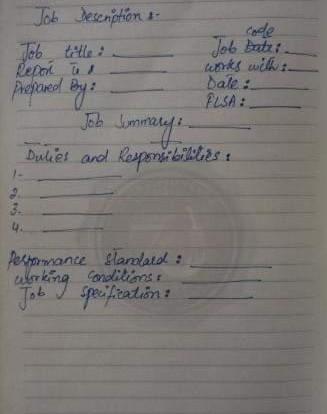 Job Description :-
Job title : ________ Job code Date : ____
Report to : ________ works with : ____
Prepared By : ________ Date : ____
FLSA : ____
Job Summary : ________
Duties and Responsibilities :
1- ________
2 ________
3- ________
4. ________
Performance Standard : ________
Working Conditions : ________
Job Specification : ________